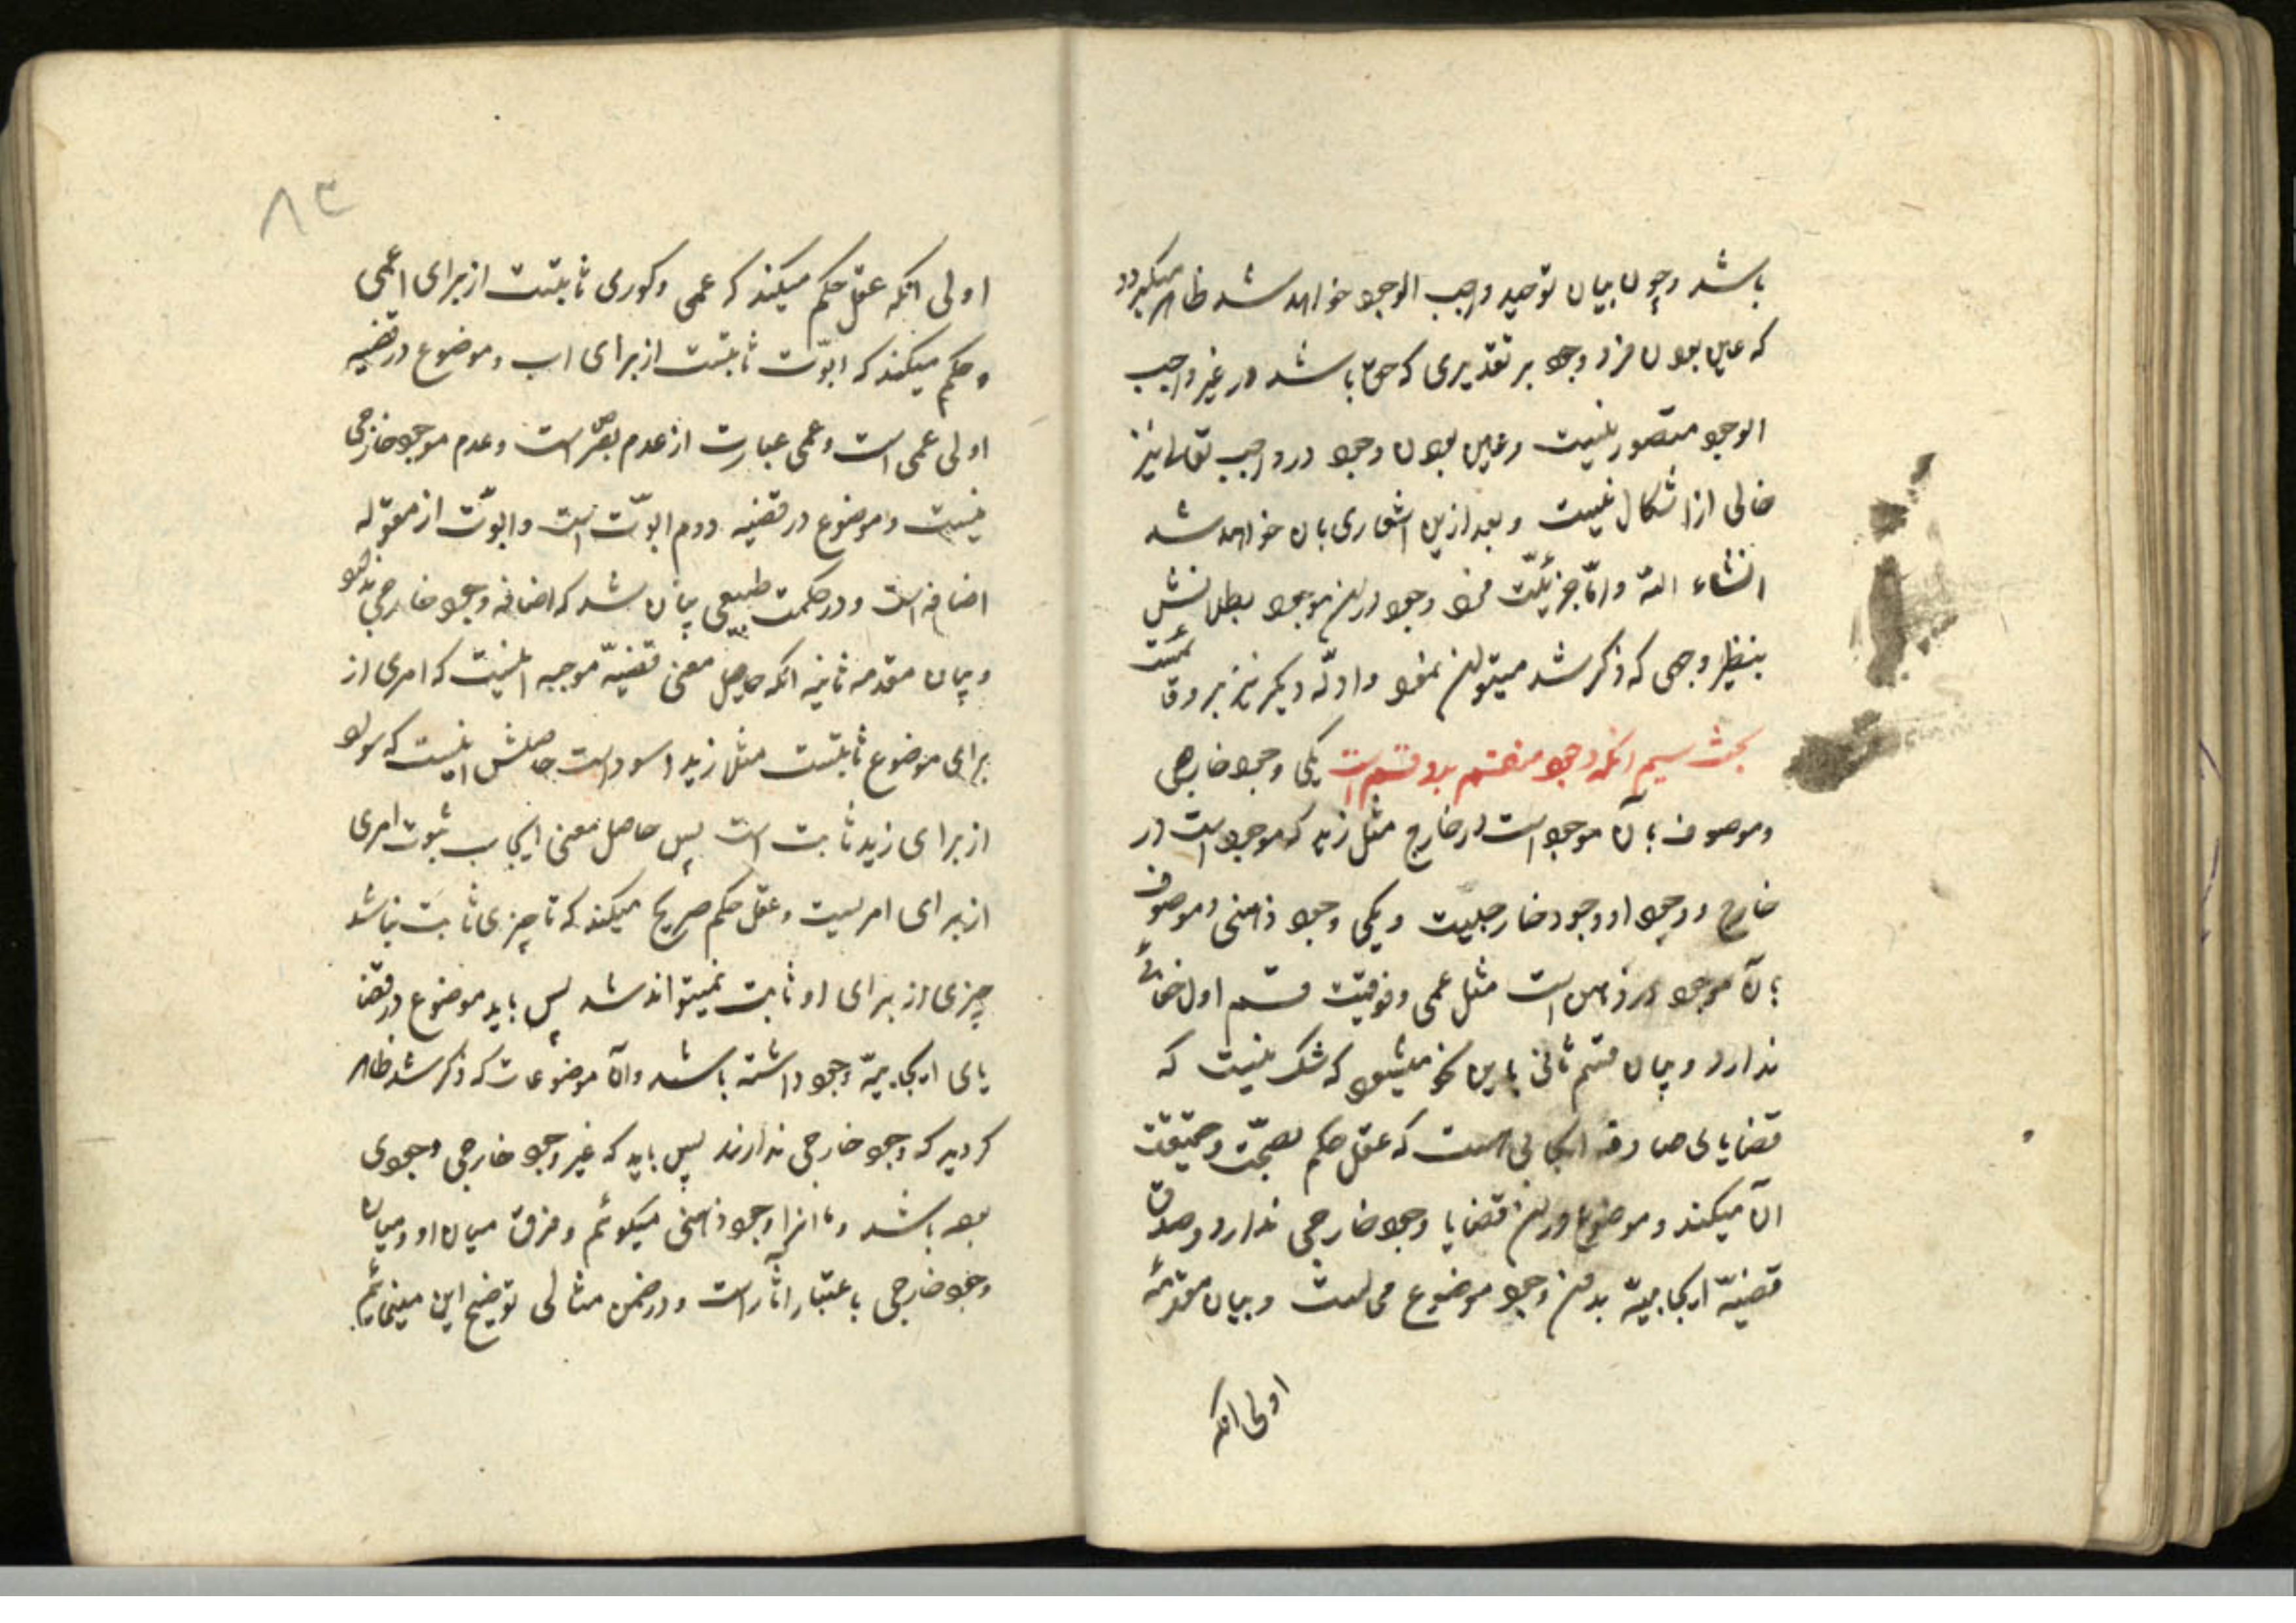 باشد و چون بیان توحید واجب الوجود خواهد شد ظاهر میگردد
که عین بودن فرد وجود بر تقدیری که حق باشد در غیر واجب
الوجود متصور نیست و عین بودن وجود در واجب تعالی نیز
خالی از اشکال نیست و بعد ازین اشعاری بان خواهد شد
انشاء الله و امّا جزئیّت فرد وجود در این موجود بطلانش
بنظیر وجهی که ذکر شد میتوان نمود و ادلّه دیگر نیز بر وقا
بحث سیم انکه وجود منقسم بدو قسم است یکی وجود خارجی
و موصوف بآن موجود است در خارج مثل زید که موجود است در
خارج و وجود او وجود خارجیست و یکی وجود ذهنی و موصوف
بآن موجود در ذهن است مثل عمی و فوقیّت قسم اول خفائی
ندارد و بیان قسم ثانی باین نحو میشود که شک نیست که
قضایای صادقه ایجابی هست که عقل حکم بصحّت و حقیقت
آن میکند و موضوع در این قضایا وجود خارجی ندارد و صدق
قضیّه ایجابیّه بدون وجود موضوع محالست و بیان مقدّمه
اولی انکه
۸۳
اولی انکه عقل حکم میکند که عمی و کوری ثابتست از برای اعمی
و حکم میکند که ابوّت ثابتست از برای اب و موضوع در قضیه
اولی عمی است و عمی عبارت از عدم بصر است و عدم موجود خارجی
نیست و موضوع در قضیه دوم ابوّت است و ابوّت از مقوله
اضافه است و در حکمت طبیعی بیان شد که اضافه وجود خارجی ندارد
و بیان مقدمه ثانیه انکه حاصل معنی قضیّه موجبه اینست که امری از
برای موضوع ثابتست مثل زید اسود است حاصلش اینست که سواد
از برای زید ثابت است پس حاصل معنی ایجاب ثبوت امری
از برای امریست و عقل حکم صریح میکند که تا چیزی ثابت نباشد
چیزی از برای او ثابت نمیتواند شد پس باید موضوع در قضا
یای ایجابیّه وجود داشته باشد و آن موضوعات که ذکر شد ظاهر
کردید که وجود خارجی ندارند پس باید که غیر وجود خارجی وجودی
بوده باشد و ما انرا وجود ذهنی میکوئم و فرق میان او و میان
وجود خارجی باعتبار اثار است و در ضمن مثالی توضیح این مینمائیم